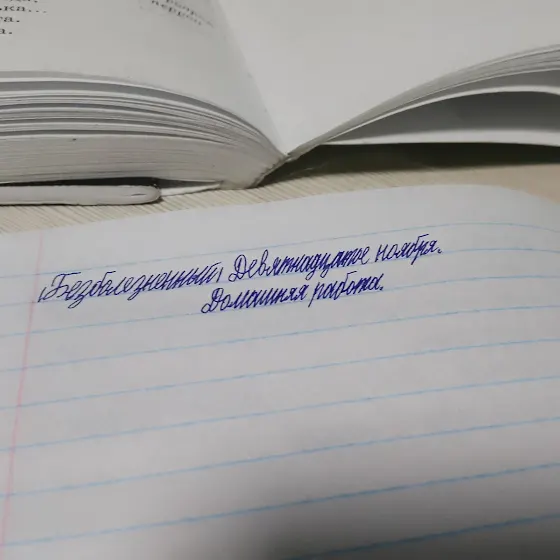 ка...
та.
а.
ıБезболезненныйı Девятнадцатое ноября.
Домашняя работа.